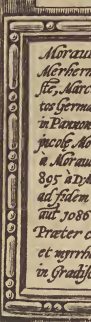 Moraui
Merhern
ste, Marc
tos Germa
in Pannon
incolę Mo
a Moraua
895 a Dy
ad fidem
aut 1086
Præter c
et myrrh
in Gradisc